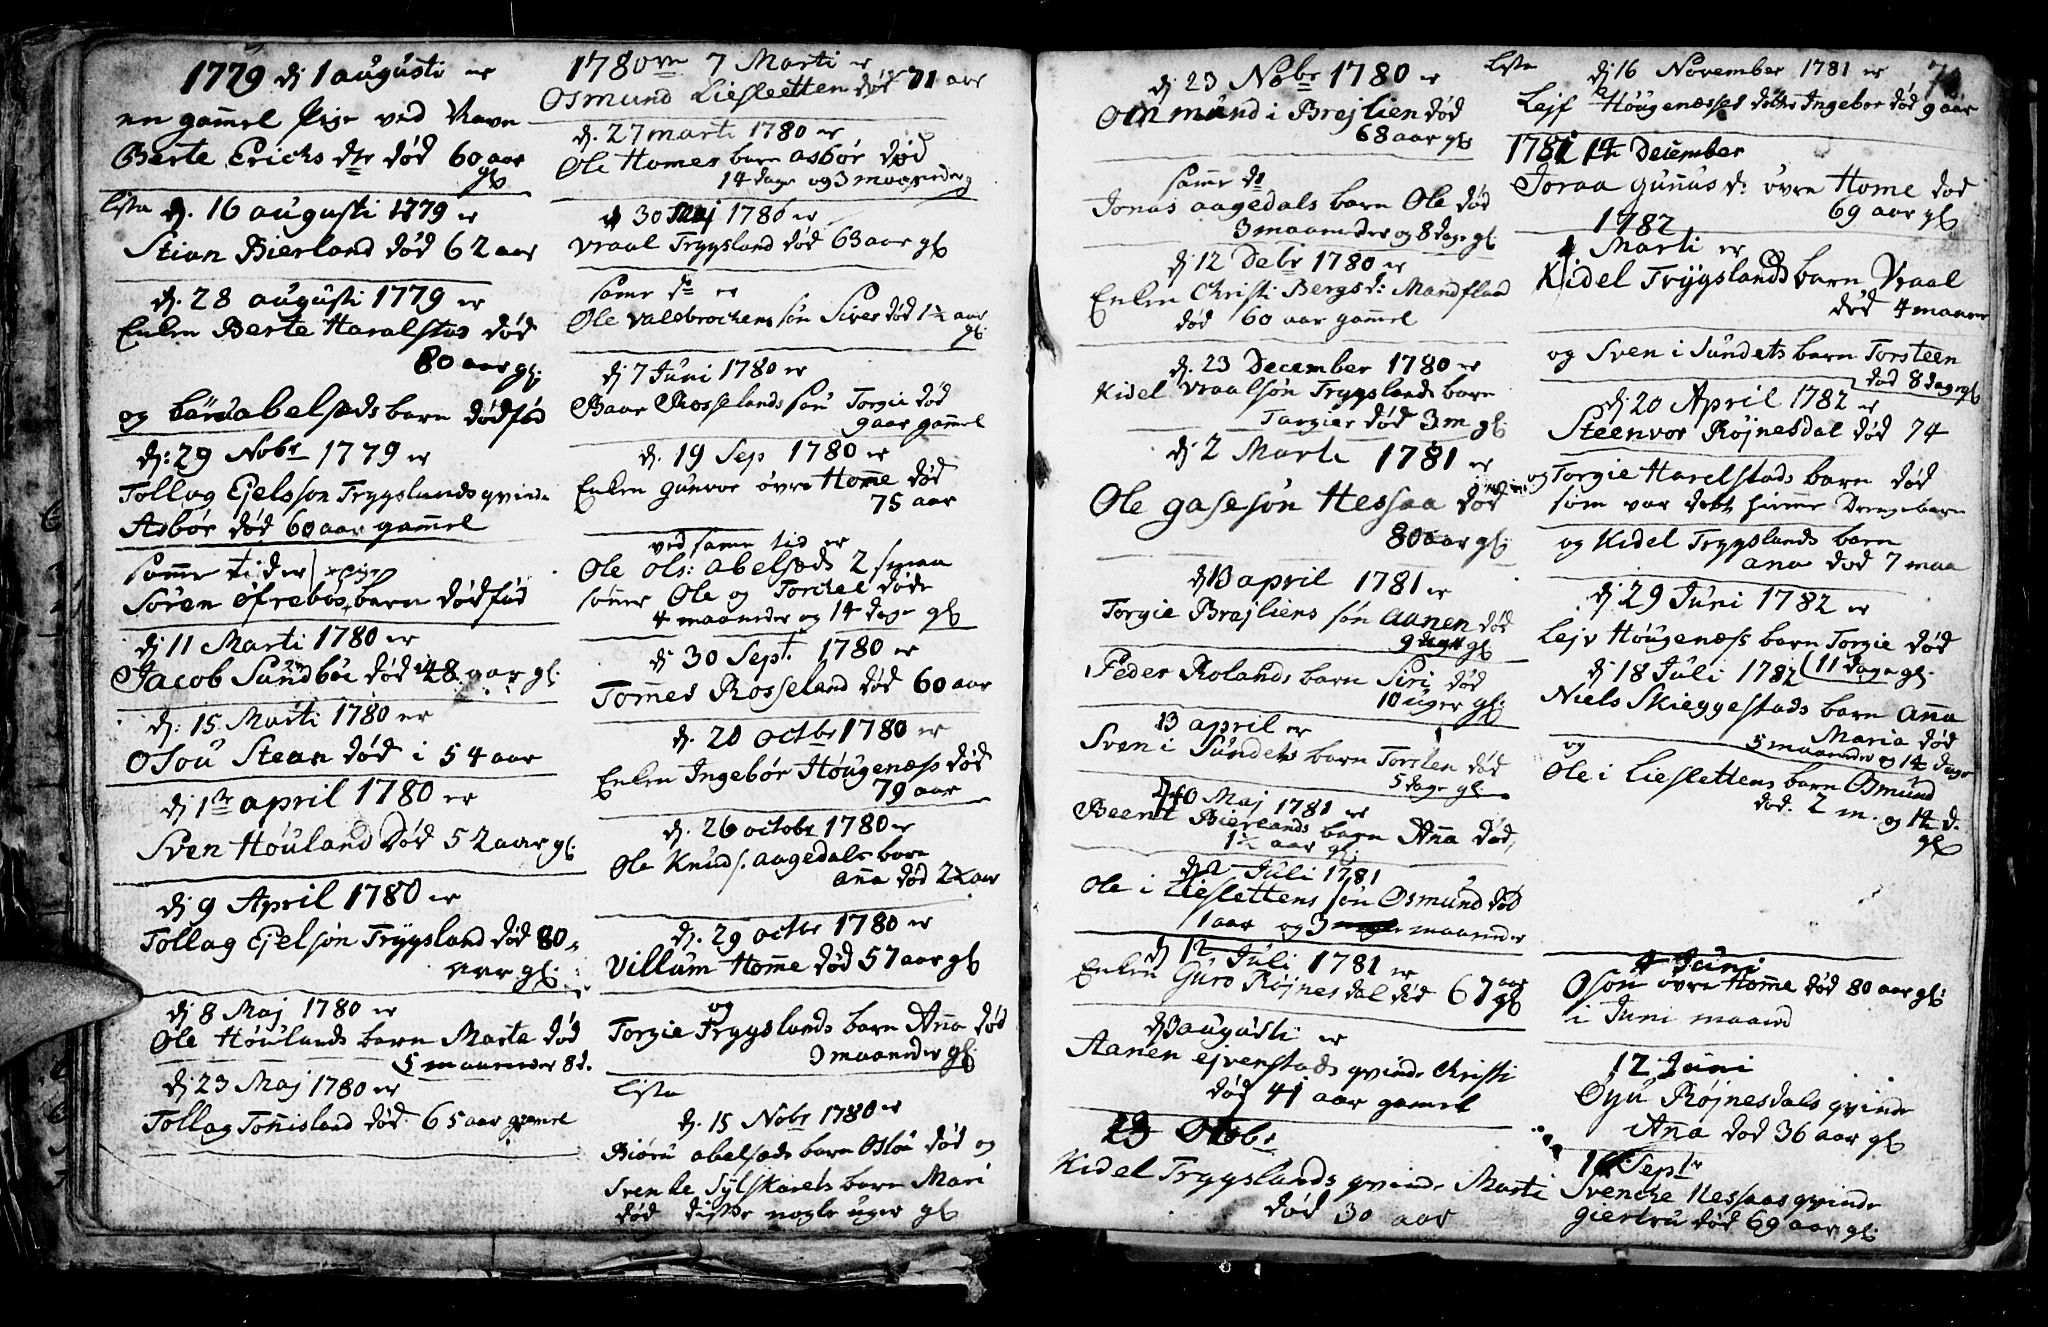 1779 dj 1 augusti er
en gammel Pige ved Navn
Berte Erichs dtr død 60 aar
gl
lista dj. 16 augusti 1779 er
Stian Bierland død 62 aar
dj. 28 augusti 1779 er
Enken Berte Haralstad død
80 aar gl:
og abelsæds barn dødfød
dj: 29 Nobr 1779 er
Tollag Ejelsson Trygslands qvinde
Asbør død 60 aar gamel
samme tider
Søren øfrebøs barn dødfød
dj 11 Marti 1780 er
Jacob Sundbøe død 48 aar gl:
dj: 15 Marti 1780 er
Osou Stean død i 54 aar
dj 1 april 1780 er
Sven Høuland død 52 aar gl:
dj 9 April 1780 er
Tollag Ejelsøn Trygsland død 80
aar gl:
dj 8 Maj 1780 er
Ole Høulands barn Marta død
5 maaneder 8 d.
dj 23 Maj 1780 er
Tollag Tonnisland død 65 aar gamel
1780 7 Marti er
Osmund Liesletten død 71 aar
dj. 27 marti 1780 er
Ole Homes barn asbør død
14 dage og 3 maaneder
30 Maj 1780 er
Vraal Trygsland død 63 aar gl
samme do er
Ole Valebrochens søn Siver død 1½ aar
gl:
dj 7 Juni 1780 er
Baar Rosselands søn Torgie død
9 aar gamel
dj. 19 Sep 1780 er
Enken gunvor øvre Home død
75 aar
ved samme tid er
Ole Ols: abelsæds 2 smaa
sønner Ole og Torchel døde
4 maaneder og 14 dage gl
dj 30 Sept. 1780 er
Tomes Rosseland død 60 aar
dj. 20 octbr 1780 er
Enken Ingebør Høugenæss død
79 aar
dj. 26 octobr 1780 er
Ole Knuds. aagedals barn
anna død 2 aar
dj. 29 octbr 1780 er
Villum Homme død 57 aar gl
og
Torgie Trygslands barn Anna død
3 maaneder gl:
lista
dj. 15 Nobr 1780 er
Biørn abelsæds barn Oslou død og
Svenke Sylskareds barn Mari
død disse nogle uger gl
dj 23 Nobr 1780 er
Omund i Brejlien død
68 aar gl
samme do
Jonas aagedals barn Ole død
3 maaneder og 8 dage gl
dj 12 Debr 1780 er
Enken Christi Bergs d: Mandfland
død 60 aar gammel
dj. 23 December 1780 er
Kidel Vraalsøn Trygslands barn
Targier død 3 m gl:
dj 2 Marti 1781 er
Ole gasesøn Hessaa død
80 aar gl:
dj 13 april 1781 er
Torgie Brejliens søn Aanen død
9 gl
Peder Rolands barn Siri død
10 uger gl:
13 april er
Sven i Sundets barn Torsten død
5 dage gl.
Maj 1781 er
Beent Bierlands barn Anna død,
1½ aar gl:
Juli 1781
Ole i Lieslettens søn Osmund død
1 aar og 3 maaneder
dj 12 Juli 1781 er
Enken Guro Røjnesdal død 67 aar
gl
dj augusti er
Aanen ejvenstads qvinde Christi
død 41 aar gamel
23 Octobr
Kidel Trygslands qvinde Marti
død 30 aar
lista dj 16 November 1781 er 72.
Lejf Høugenæsses dotter Ingebor død 9 aar
1781 14 December
Joraa gunus d: øvre Home død
69 aar gl
1782
1 Marti er
Kidel Trygslands barn Vraal
død 4 maaner
og Sven i Sundets barn Torsteen
død 8 dage gl
dj 20 April 1782 er
Steenvor Røjnesdal død 74
og Torgie Harelstads barn død
som var døbt hiemme Drengebarn
og Kidel Trygslands barn
ana død 7 maa
dj 29 Juni 1782 er
Lejv Høugenæss barn Torgie død
11 dage gl.
dj 18 Juli 1782
Niels Skieggestads barn Anna
Maria død
5 maaneder og 14 dage
og
Ole i Lieslettens barn Osmund
død. 2 m. og 14 d.
gl
4 Juni
Oson øvre Homme død 80 aar gl:
i Juni maaned
12 Juni
Øyu Røjnesdals qvinde
Anna død 36 aar gl
Septr
Svenche Hessaas qvinde
giertru død 69 aar gl: